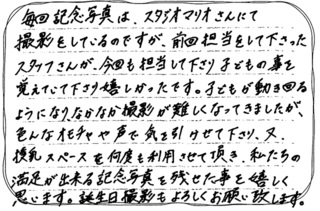 毎回記念写真は、スタジオマリオさんにて
撮影をしているのですが、前回担当をして下さった
スタッフさんが、今回も担当して下さり子どもの事を
覚えてて下さり嬉しかったです。子どもが動き回る
ようになりなかなか撮影が難しくなってきましたが、
色んなオモチャや声で気を引けせて下り、又、
授乳スペースを何度も利用させて頂き、私たちの
満足が出来る記念写真を残せた事を嬉しく
思います。誕生日撮影もよろしくお願い致します。